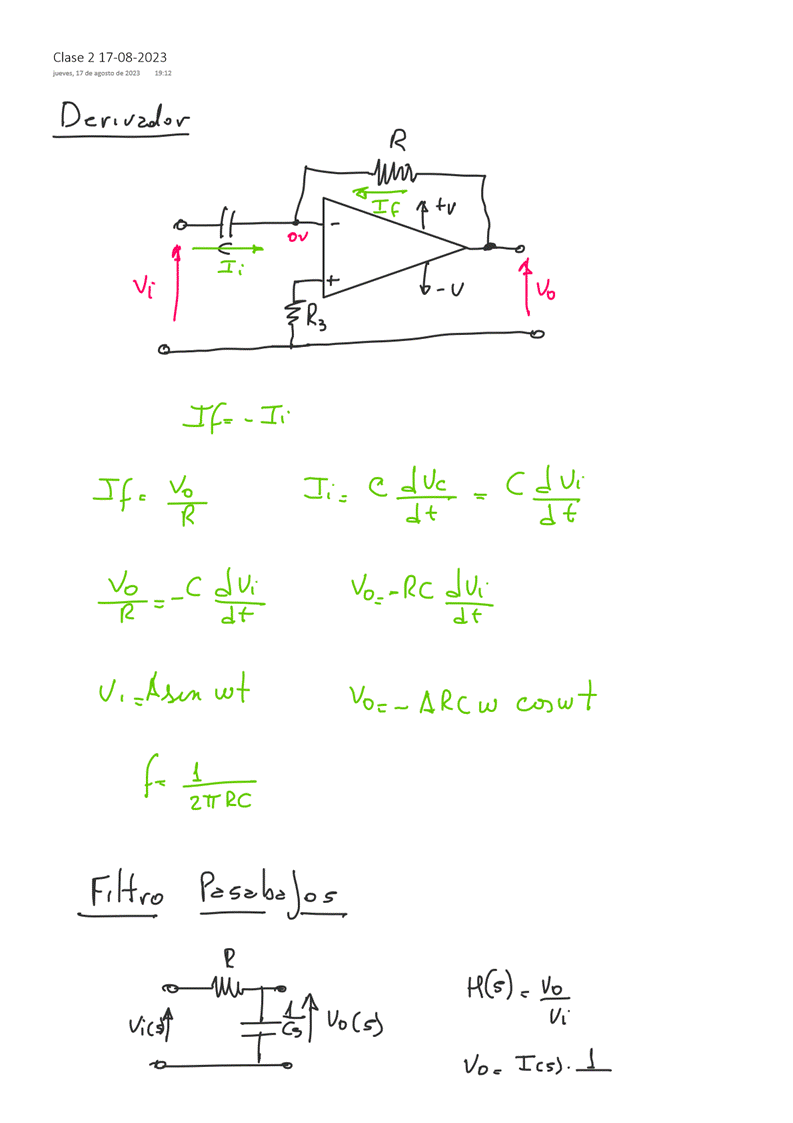 Clase 2 17-08-2023
jueves, 17 de agosto de 2023 19:12
Derivador
R
If
+V
-
0V
C
Ii
Vi
+
R3
-V
Vo
If = - Ii
If = Vo/R Ii = C dVc/dt = C dVi/dt
Vo/R = -C dVi/dt Vo = -RC dVi/dt
Vi = A sen wt Vo = - ARC w cos wt
f = 1/2πRC
Filtro Pasabajos
R
Vi(s) 1/Cs Vo(s)
H(s) = Vo/Vi
Vo = I(s) . 1